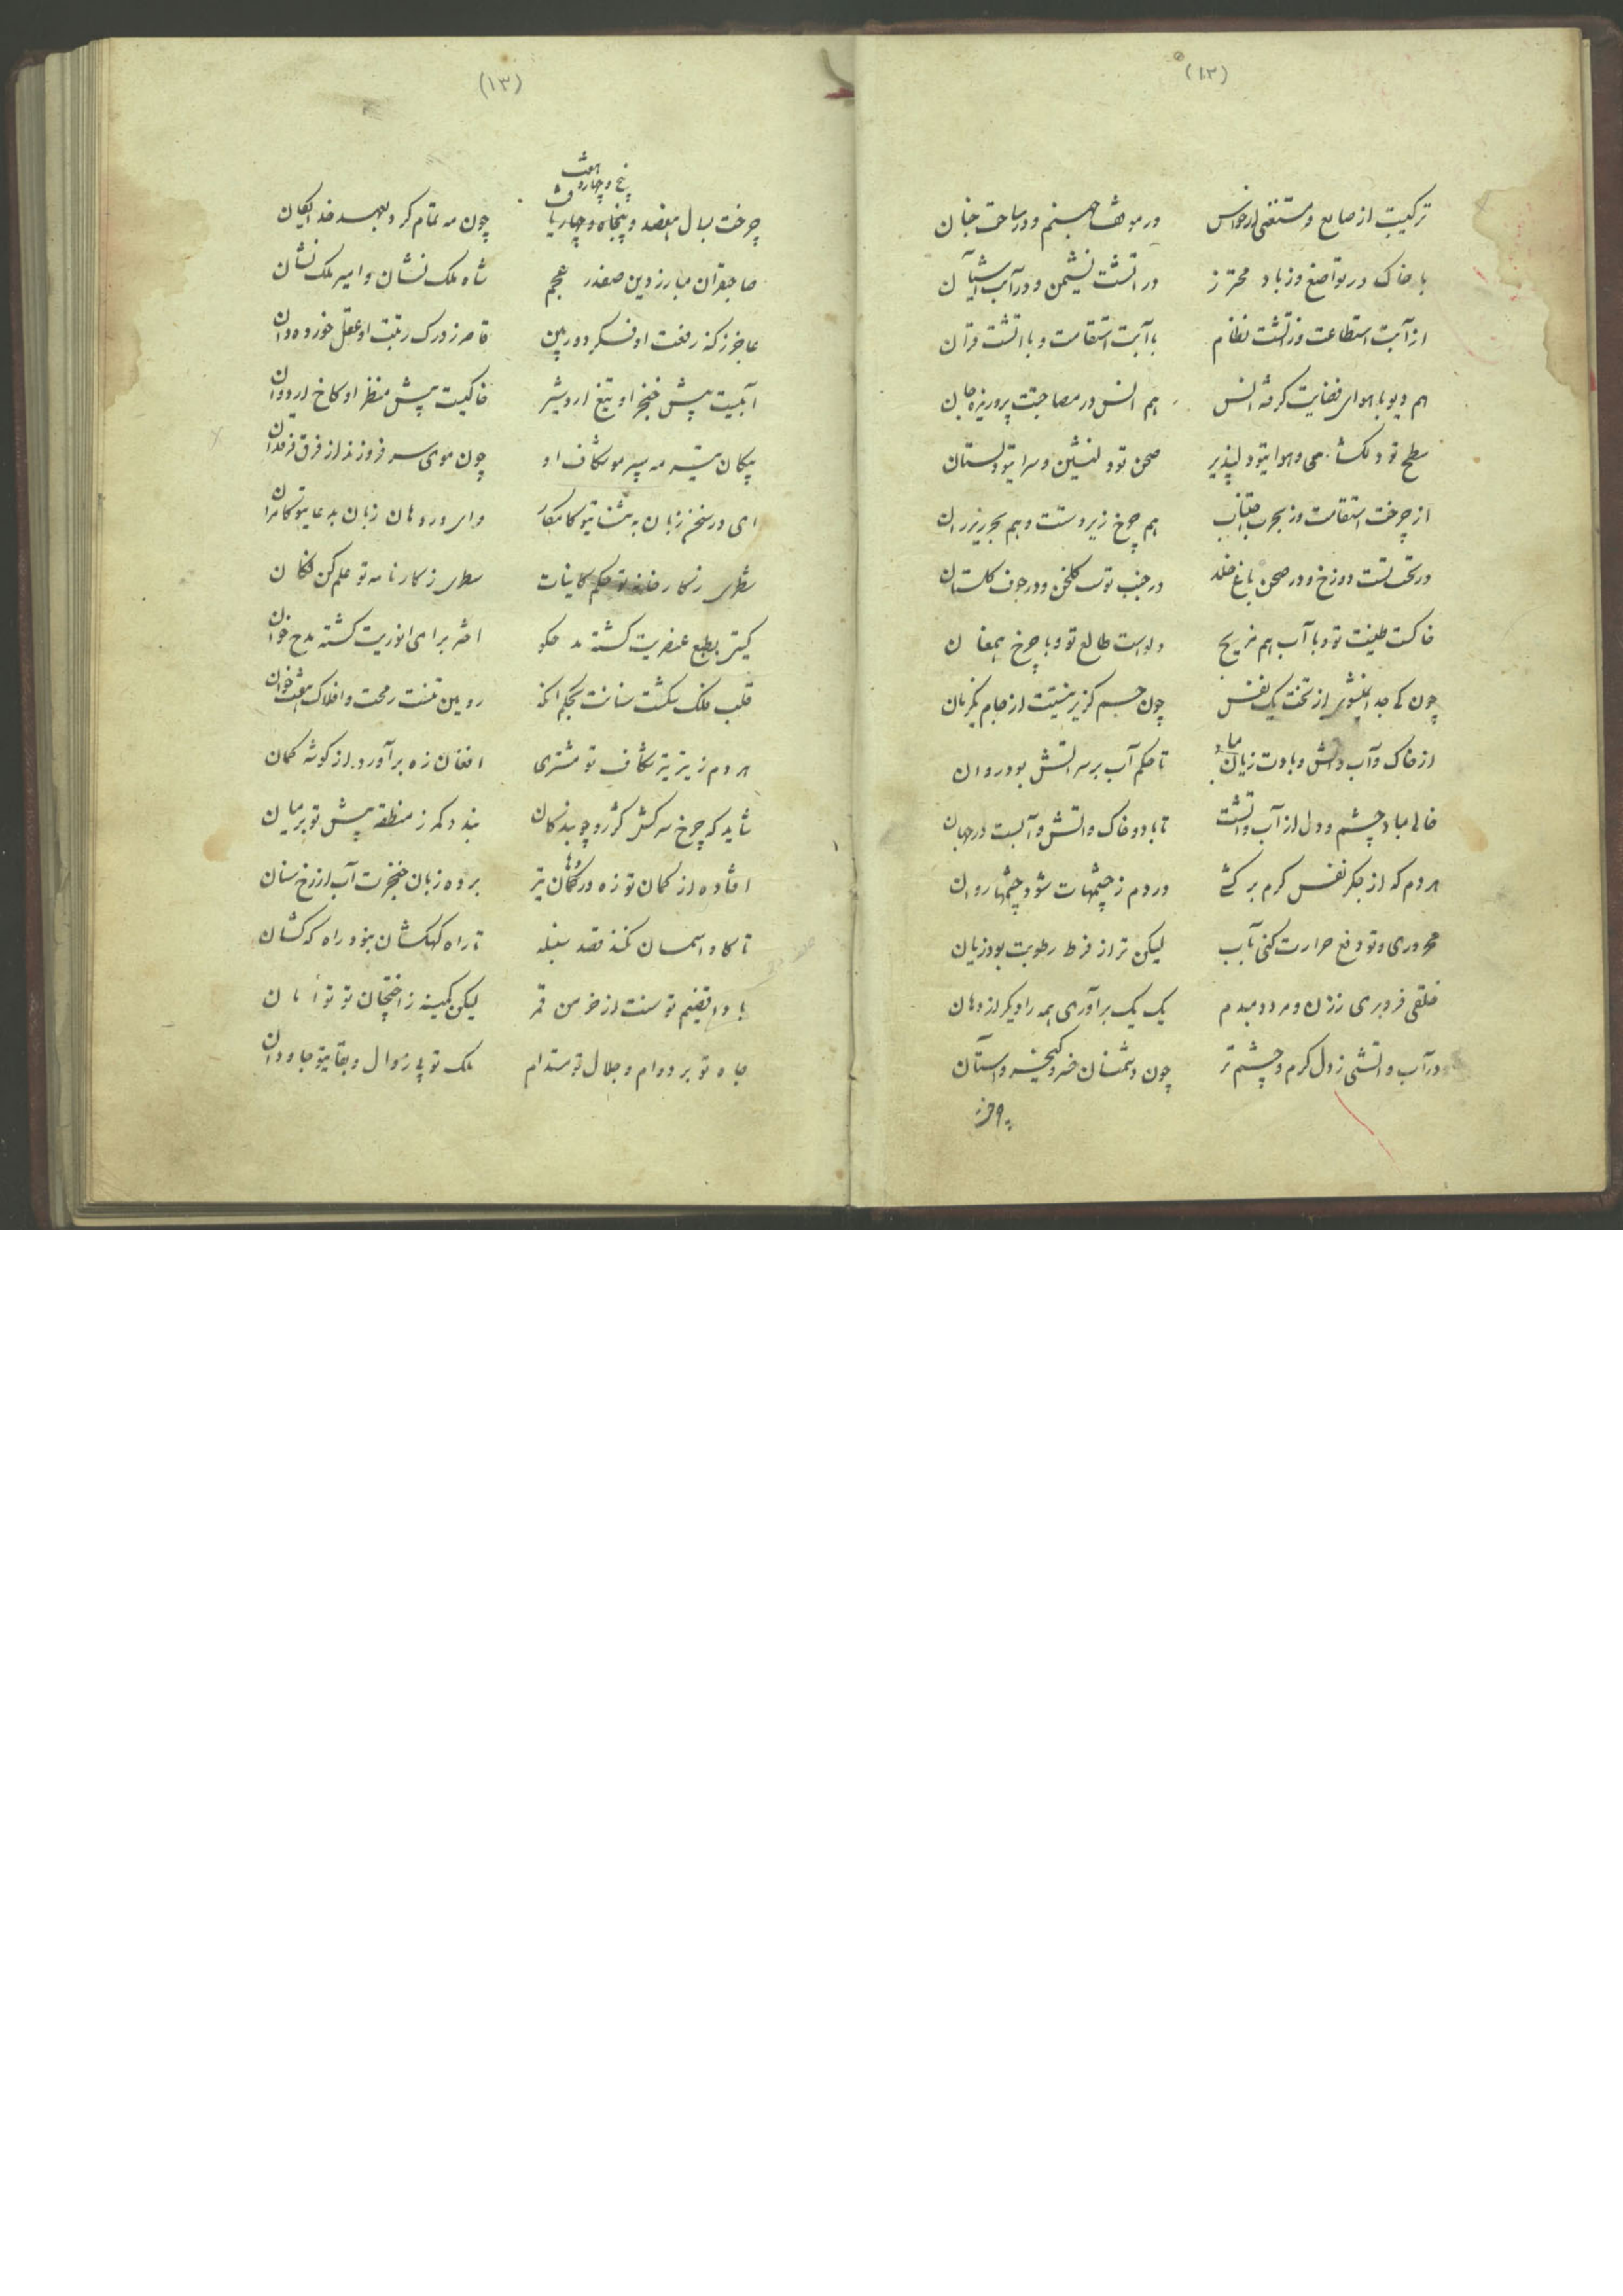 (١٢)
ترکیبت از صایع و مستغنی از حواس در موقف جهنم و در ساحت جنان
با خاک در تواضع و ز باد محترز در آتشت نشیمن و در آب آشیان
از آبت استطاعت و ز آتشت نظام با آبت استقامت و با آتشت قران
هم دیو با هوای فضایت گرفته انس هم انس در مصاحبت پرور یزه جان
سطح تو دلکشای و هوای تو دلپذیر صحن تو دلنشین و سرای تو دلستان
از چرخت استقامت و ز بحر هم چرخ زیر دستت و هم بحر زیر ران
در تحت تست دوزخ و در صحن باغ خلد در جنب توست گلخن و در جوف گلستان
خاکست طینت تو و با آب هم مزیج دلوست طالع تو و با چرخ همعنان
چون از تخت یک نفس چون جسم گزیر نیست از جام یکزمان
از خاک و آب و آتش و بادت زیان مباد تا حکم آب بر سر آتش بود روان
خالی مباد چشم و دل از آب و آتشت تا باد و خاک و آتش و آبست در جهان
هر دم که از جگر نفس گرم بر کشی در دم ز چشمهات شود چشمها روان
محروری و تو دفع حرارت کنی بآب لیکن ترا ز فرط رطوبت بود زیان
خلقی فرو بری ز زن و مرد دمبدم یک یک برآوری همه را دیگر از دهان
در آب و آتشی ز دل گرم و چشم تر چون دشمنان خسرو کیخسرو آستان
چرخت
(١٣)
پنج و چهار و هفت
چرخت بسال هفصد و پنجاه و چار یافت چون مه تمام کرد بعهد خدایگان
صاحبقران مبارز دین صفدر عجم شاه ملک نشان و امیر ملک نشان
عاجز ز کنه رفعت او فکر دوربین قاصر ز درک رتبت او عقل خورده دان
آبیست پیش خنجر او تیغ اردشیر خاکیست پیش منظر او کاخ اردوان
پیکان تیر مه سپر موشکاف او چون موی سر فرو زند از فرق فرقدان
ای در سخن زبان به ثنای تو کامکار وای در دهان زبان بدعای تو کامران
سطری ز کارخانه تو حکم کاینات سطری ز کارنامه تو علم کن فکان
گیتی بطبع عنصریت گشته مدحگو اختر برای انوریت گشته مدح خوان
قلب فلک شکست سنانت بحکم آنکه رویین تنست رمحت و افلاک هفتخوان
هر دم ز تیر تیز شکاف تو مشتری افغان زه برآورد از گوشه کمان
شاید که چرخ سرکش کژرو چو بندگان بندد کمر ز منطقه پیش تو بر میان
افتاده از کمان تو زه در گمان تیر برده زبان خنجرت آب از رخ سنان
تا گاو آسمان نکند قصد سنبله تا راه کهکشان نبود راه که کشان
بادا تنت از خرمن قمر لیکن کمینه ز اختچیان تو توأمان
جاه تو بر دوام و جلال تو مستدام ملک تو بی زوال و بقای تو جاودان